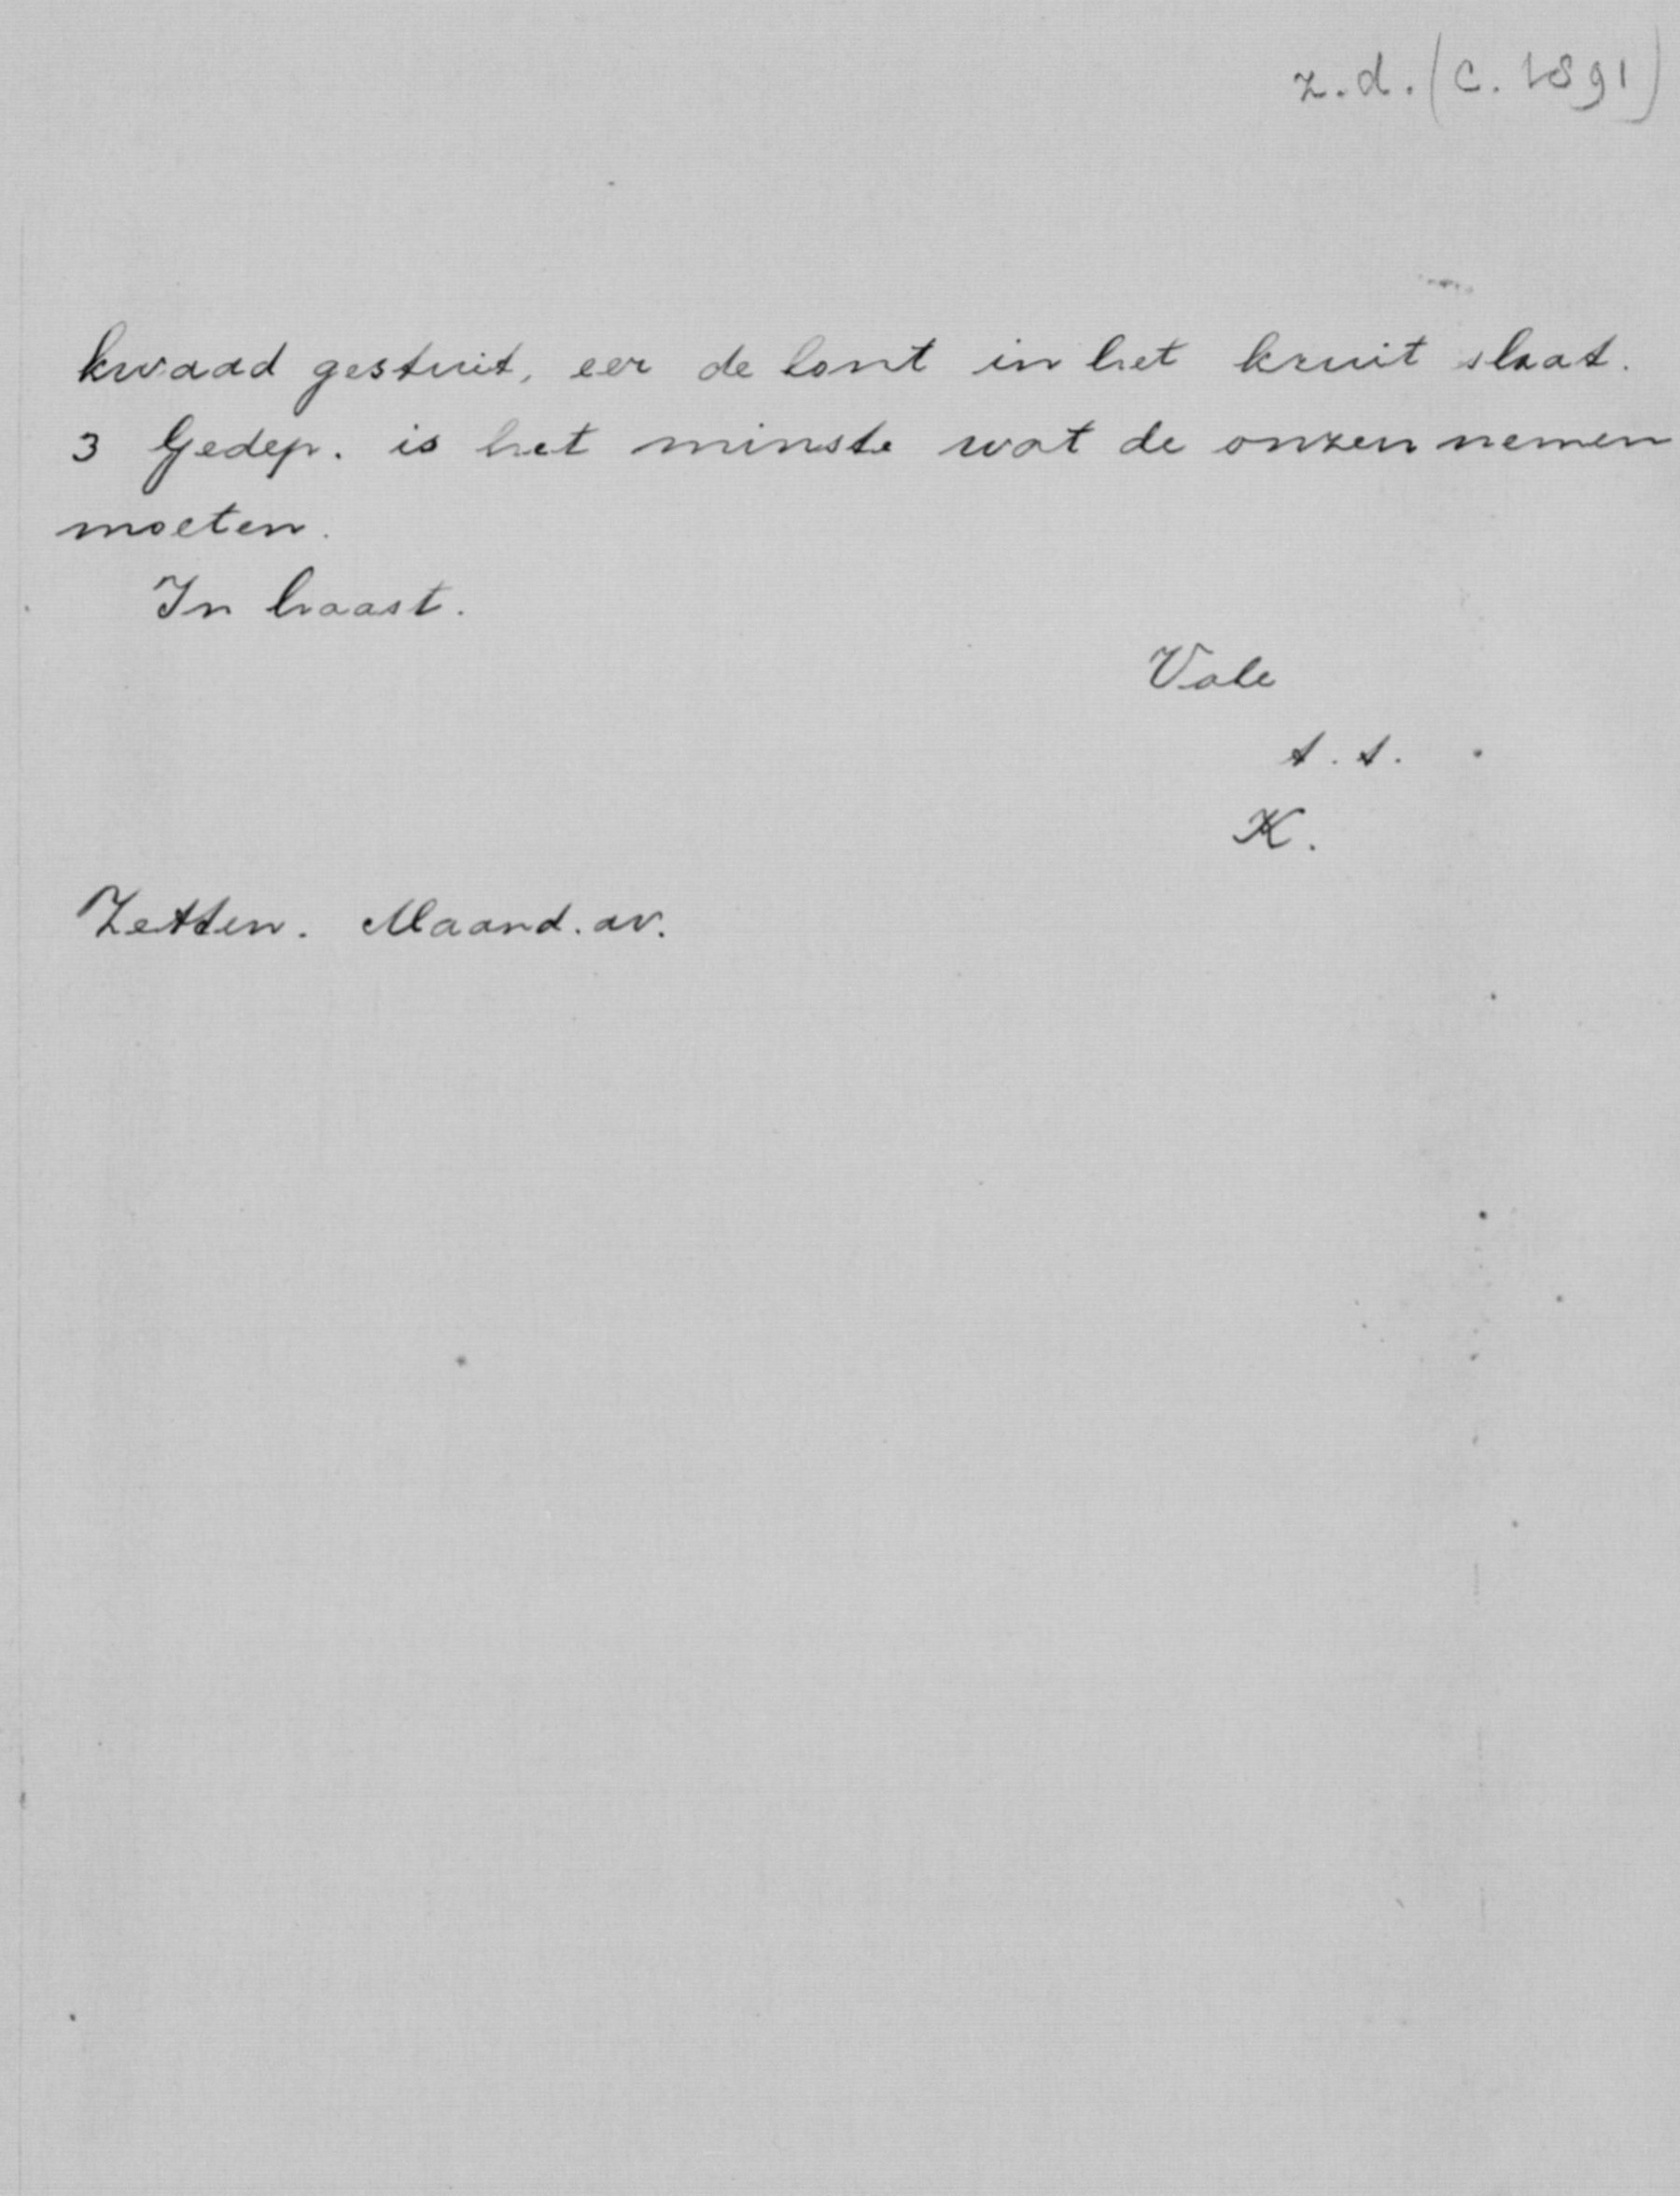 z.d. (c. 1891)
kwaad gestuit, eer de lont in het kruit slaat.
3 Gedep. is het minste wat de onzen nemen
moeten.
In haast.
Vale
t.t.
K.
Zetten. Maand. av.